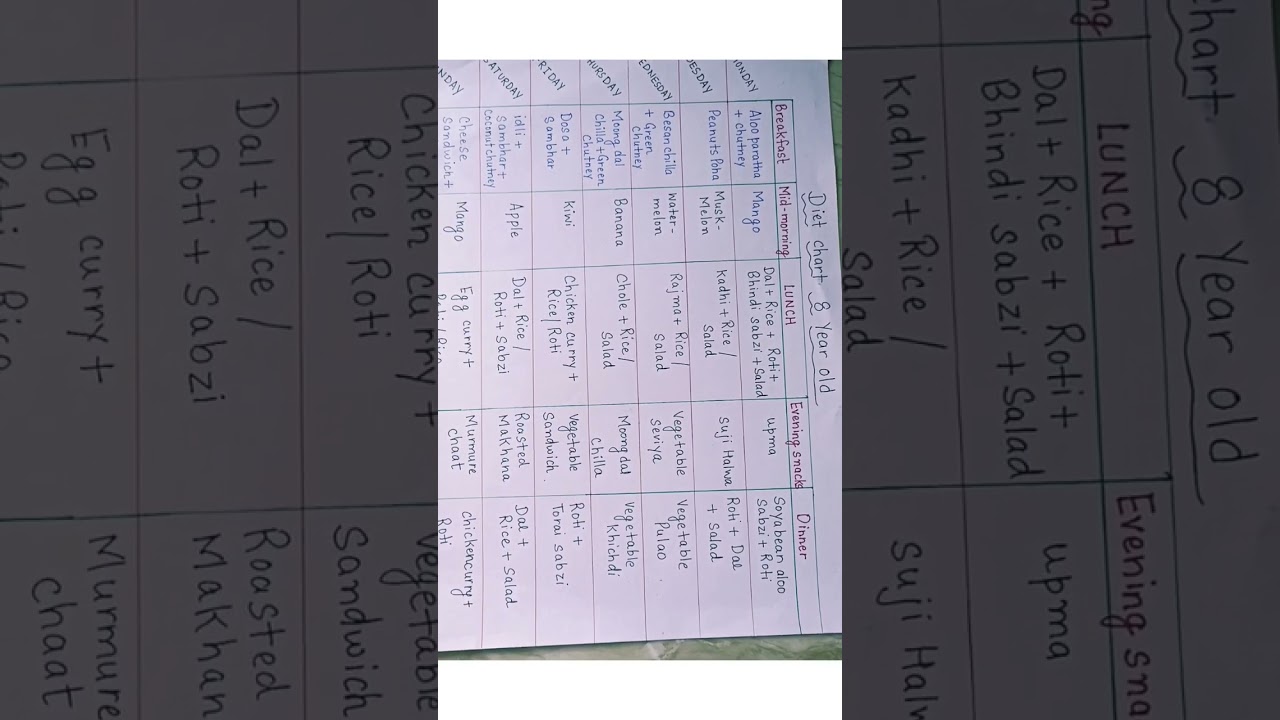 Diet chart 8 Year old
Breakfast Mid-morning LUNCH Evening snacks Dinner
Aloo paratha
+ chutney
Mango
Dal + Rice + Roti +
Bhindi sabzi + Salad
upma
Soyabean aloo
Sabzi + Roti
Peanuts Poha
Musk-
Melon
Kadhi + Rice /
Salad
Suji Halwa
Roti + Dal
+ Salad
Besan chilla
+ Green
chutney
water-
melon
Rajma + Rice /
Salad
Vegetable
Seviya
Vegetable
Pulao
Moong dal
chilla + Green
chutney
Banana
Chole + Rice /
Salad
Moong dal
chilla
Vegetable
Khichdi
Dosa +
Sambhar
kiwi
Chicken curry +
Rice / Roti
Vegetable
Sandwich
Roti +
Torai sabzi
idli +
Sambhar +
Coconut chutney
Apple
Dal + Rice /
Roti + Sabzi
Roasted
Makhana
Dal +
Rice + Salad
Cheese
Sandwich +
Mango
Egg curry +
Murmure
chaat
chicken curry +
Roti
chart 8 Year old
LUNCH
Dal + Rice + Roti +
Bhindi sabzi + Salad
upma
Kadhi + Rice /
Salad
Chicken curry +
Rice / Roti
Vegetable
Sandwich
Dal + Rice /
Roti + Sabzi
Roasted
Egg curry +
Murmure
chaat